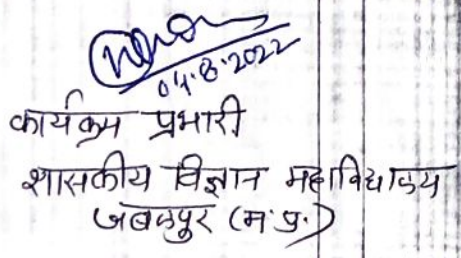 04.8.2022
कार्यक्रम प्रभारी
शासकीय विज्ञान महाविद्यालय
जबलपुर (म.प्र.)